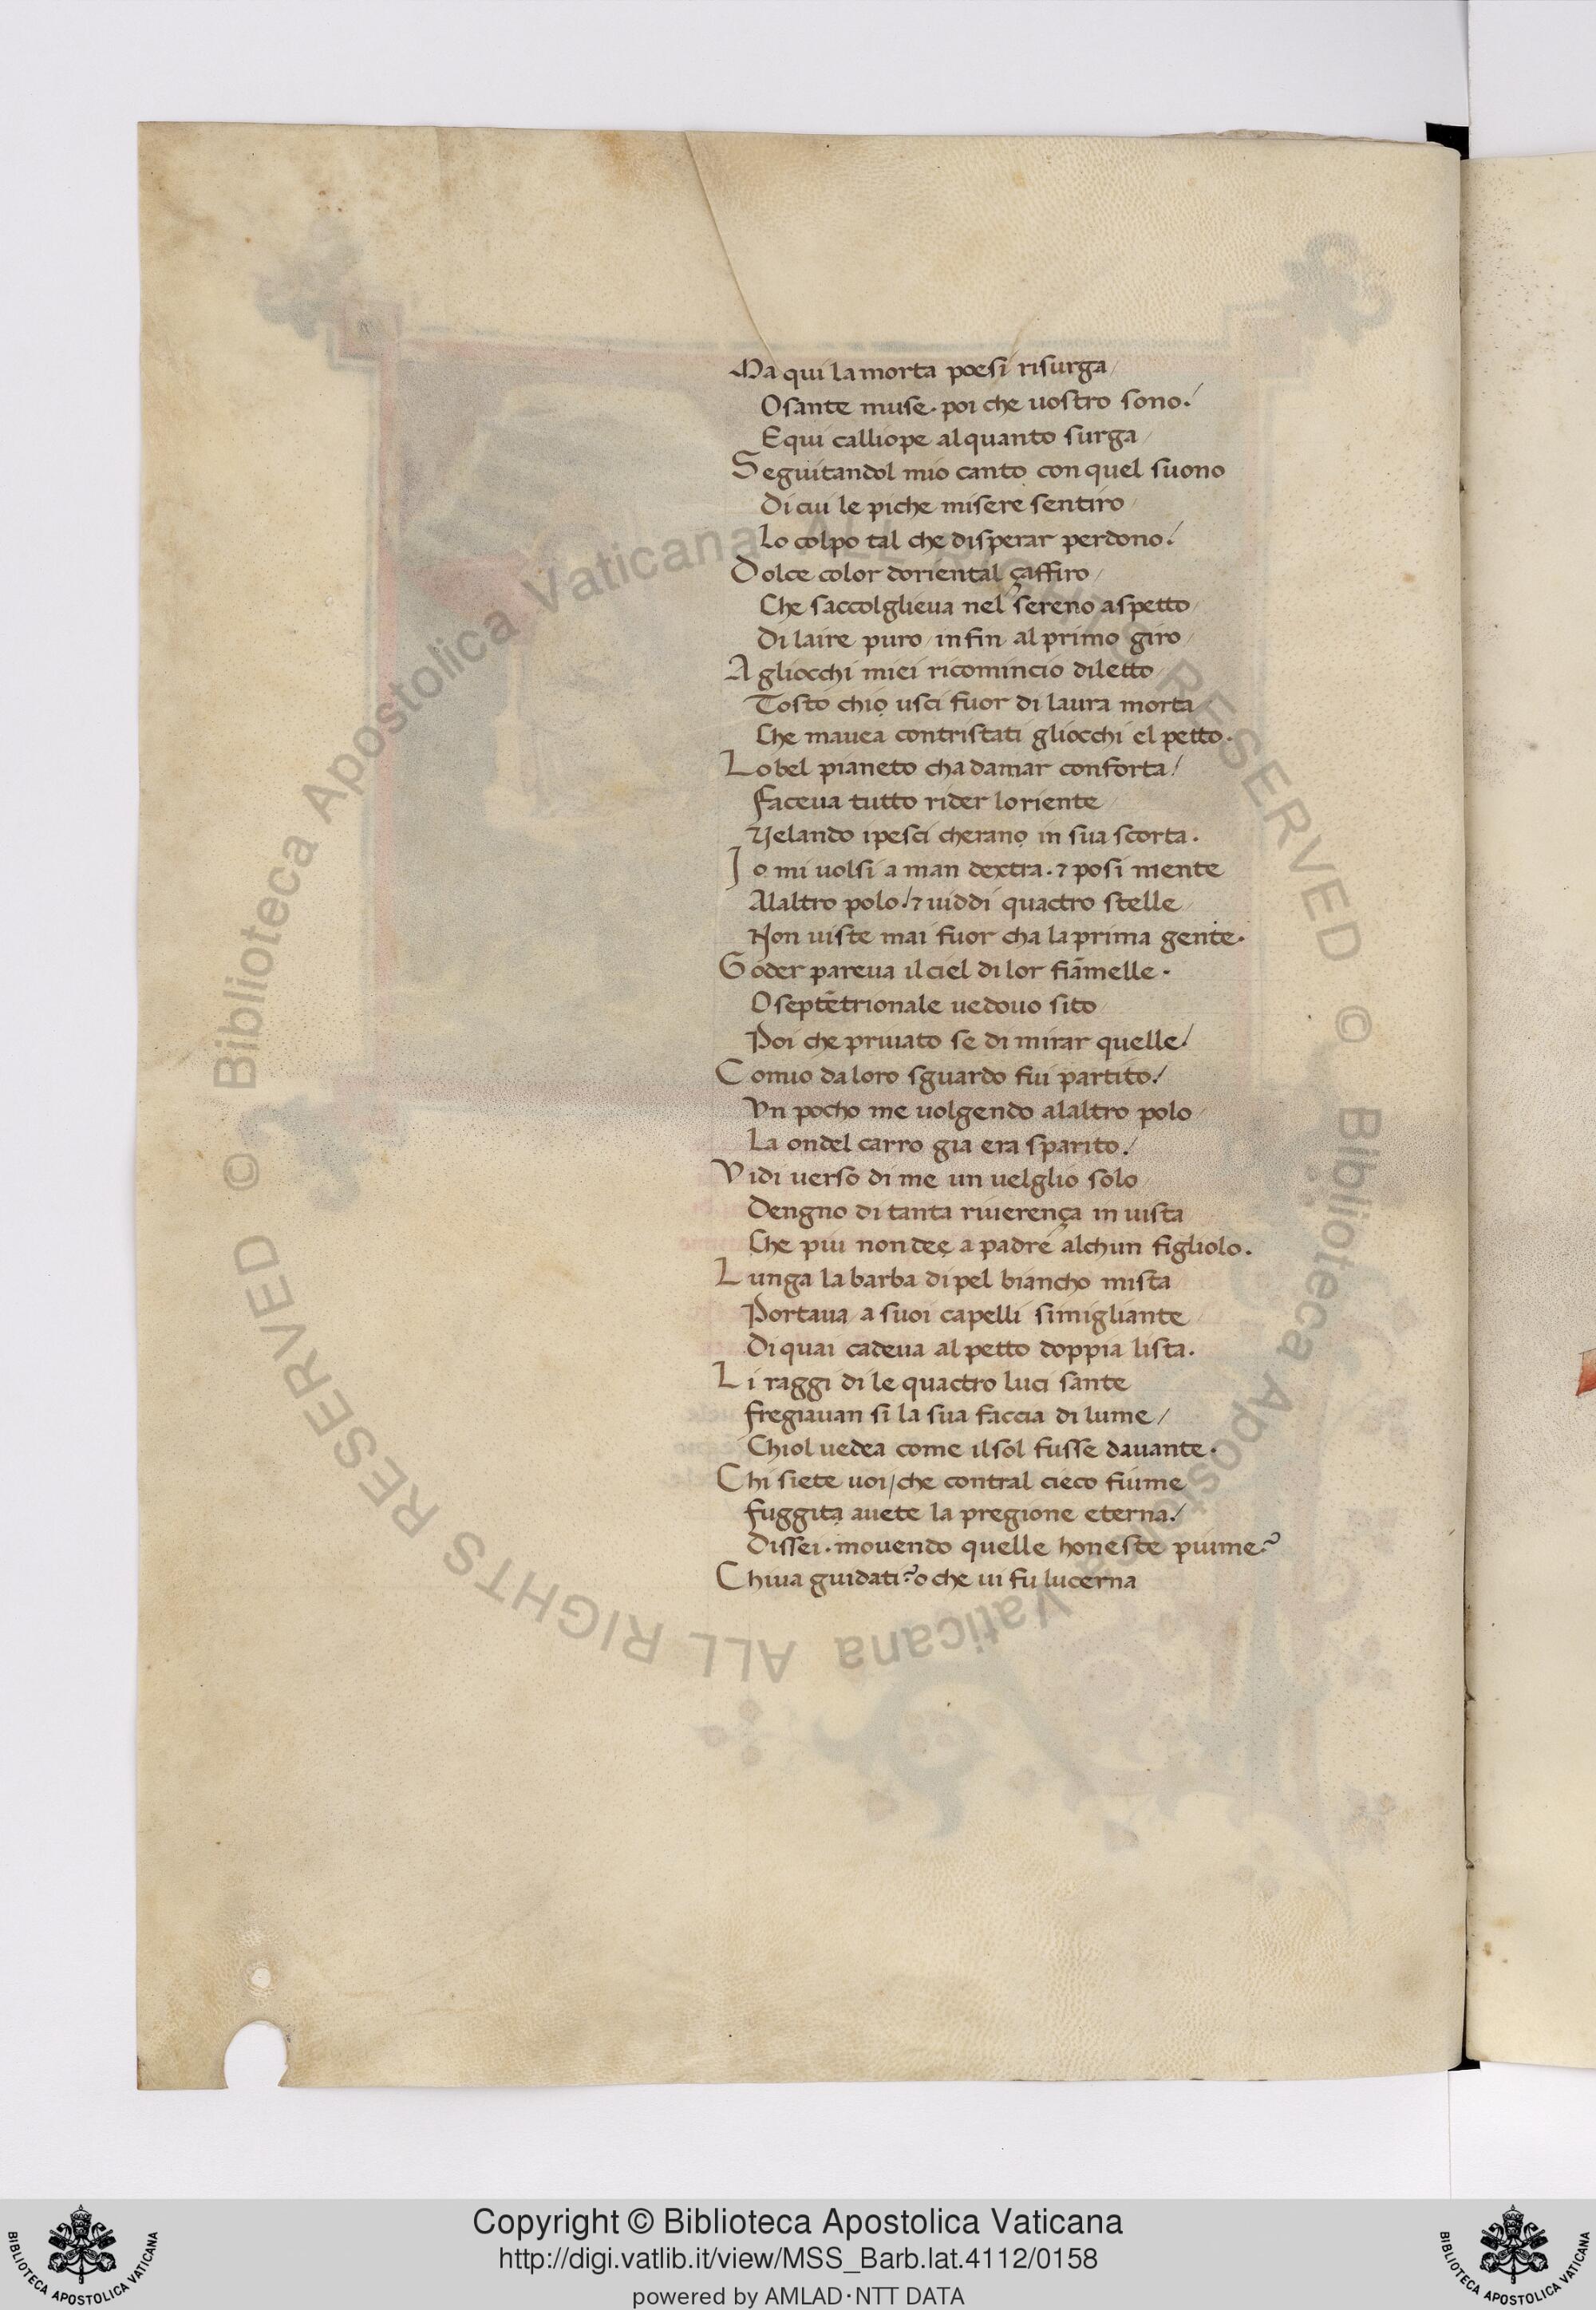 Ma qui la morta poesi risurga /
O sante muse · poi che uostro sono ./
E qui calliope alquanto surga /
Seguitandol mio canto con quel suono
Di cui le piche misere sentiro /
Lo colpo tal che disperar perdono ./
Dolce color doriental çaffiro /
Che saccolglieua nel sereno aspetto /
Di laire puro / infin al primo giro /
A gliocchi miei ricomincio diletto /
Tosto chio usci fuor di laura morta /
Che mauea contristati gliocchi el petto ·
Lo bel pianeto cha damar conforta /
Faceua tutto rider loriente /
Velando ipesci cherano in sua scorta ·
Io mi uolsi a man dextra · ⁊ posi mente
Alaltro polo ./ ⁊ uiddi quactro stelle /
Non uiste mai fuor cha la prima gente ·
Goder pareua il ciel di lor fiāmelle ·
O septētrionale uedouo sito /
Poi che priuato se di mirar quelle ./
Comio da loro sguardo fui partito ./
Vn pocho me uolgendo alaltro polo /
La ondel carro gia era sparito ./
Vidi uerso di me un uelglio solo /
Dengno di tanta riuerença in uista
Che piu non dee a padre alchun figliolo ·
Lunga la barba di pel biancho mista
Portaua / a suoi capelli simigliante /
Di quai cadeua al petto doppia lista ·
Li raggi di le quactro luci sante
Fregiauan si la sua faccia di lume /
Chiol uedea come il sol fusse dauante ·
Chi siete uoi / che contral cieco fiume
Fuggita auete la pregione eterna ./
Dissei · mouendo quelle honeste piume ?
Chiua guidati ? o che ui fu lucerna
© Biblioteca Apostolica Vaticana ALL RIGHTS RESERVED
© Biblioteca Apostolica Vaticana ALL RIGHTS RESERVED
Copyright © Biblioteca Apostolica Vaticana
http://digi.vatlib.it/view/MSS_Barb.lat.4112/0158
powered by AMLAD·NTT DATA
BIBLIOTECA APOSTOLICA VATICANA
BIBLIOTECA APOSTOLICA VATICANA